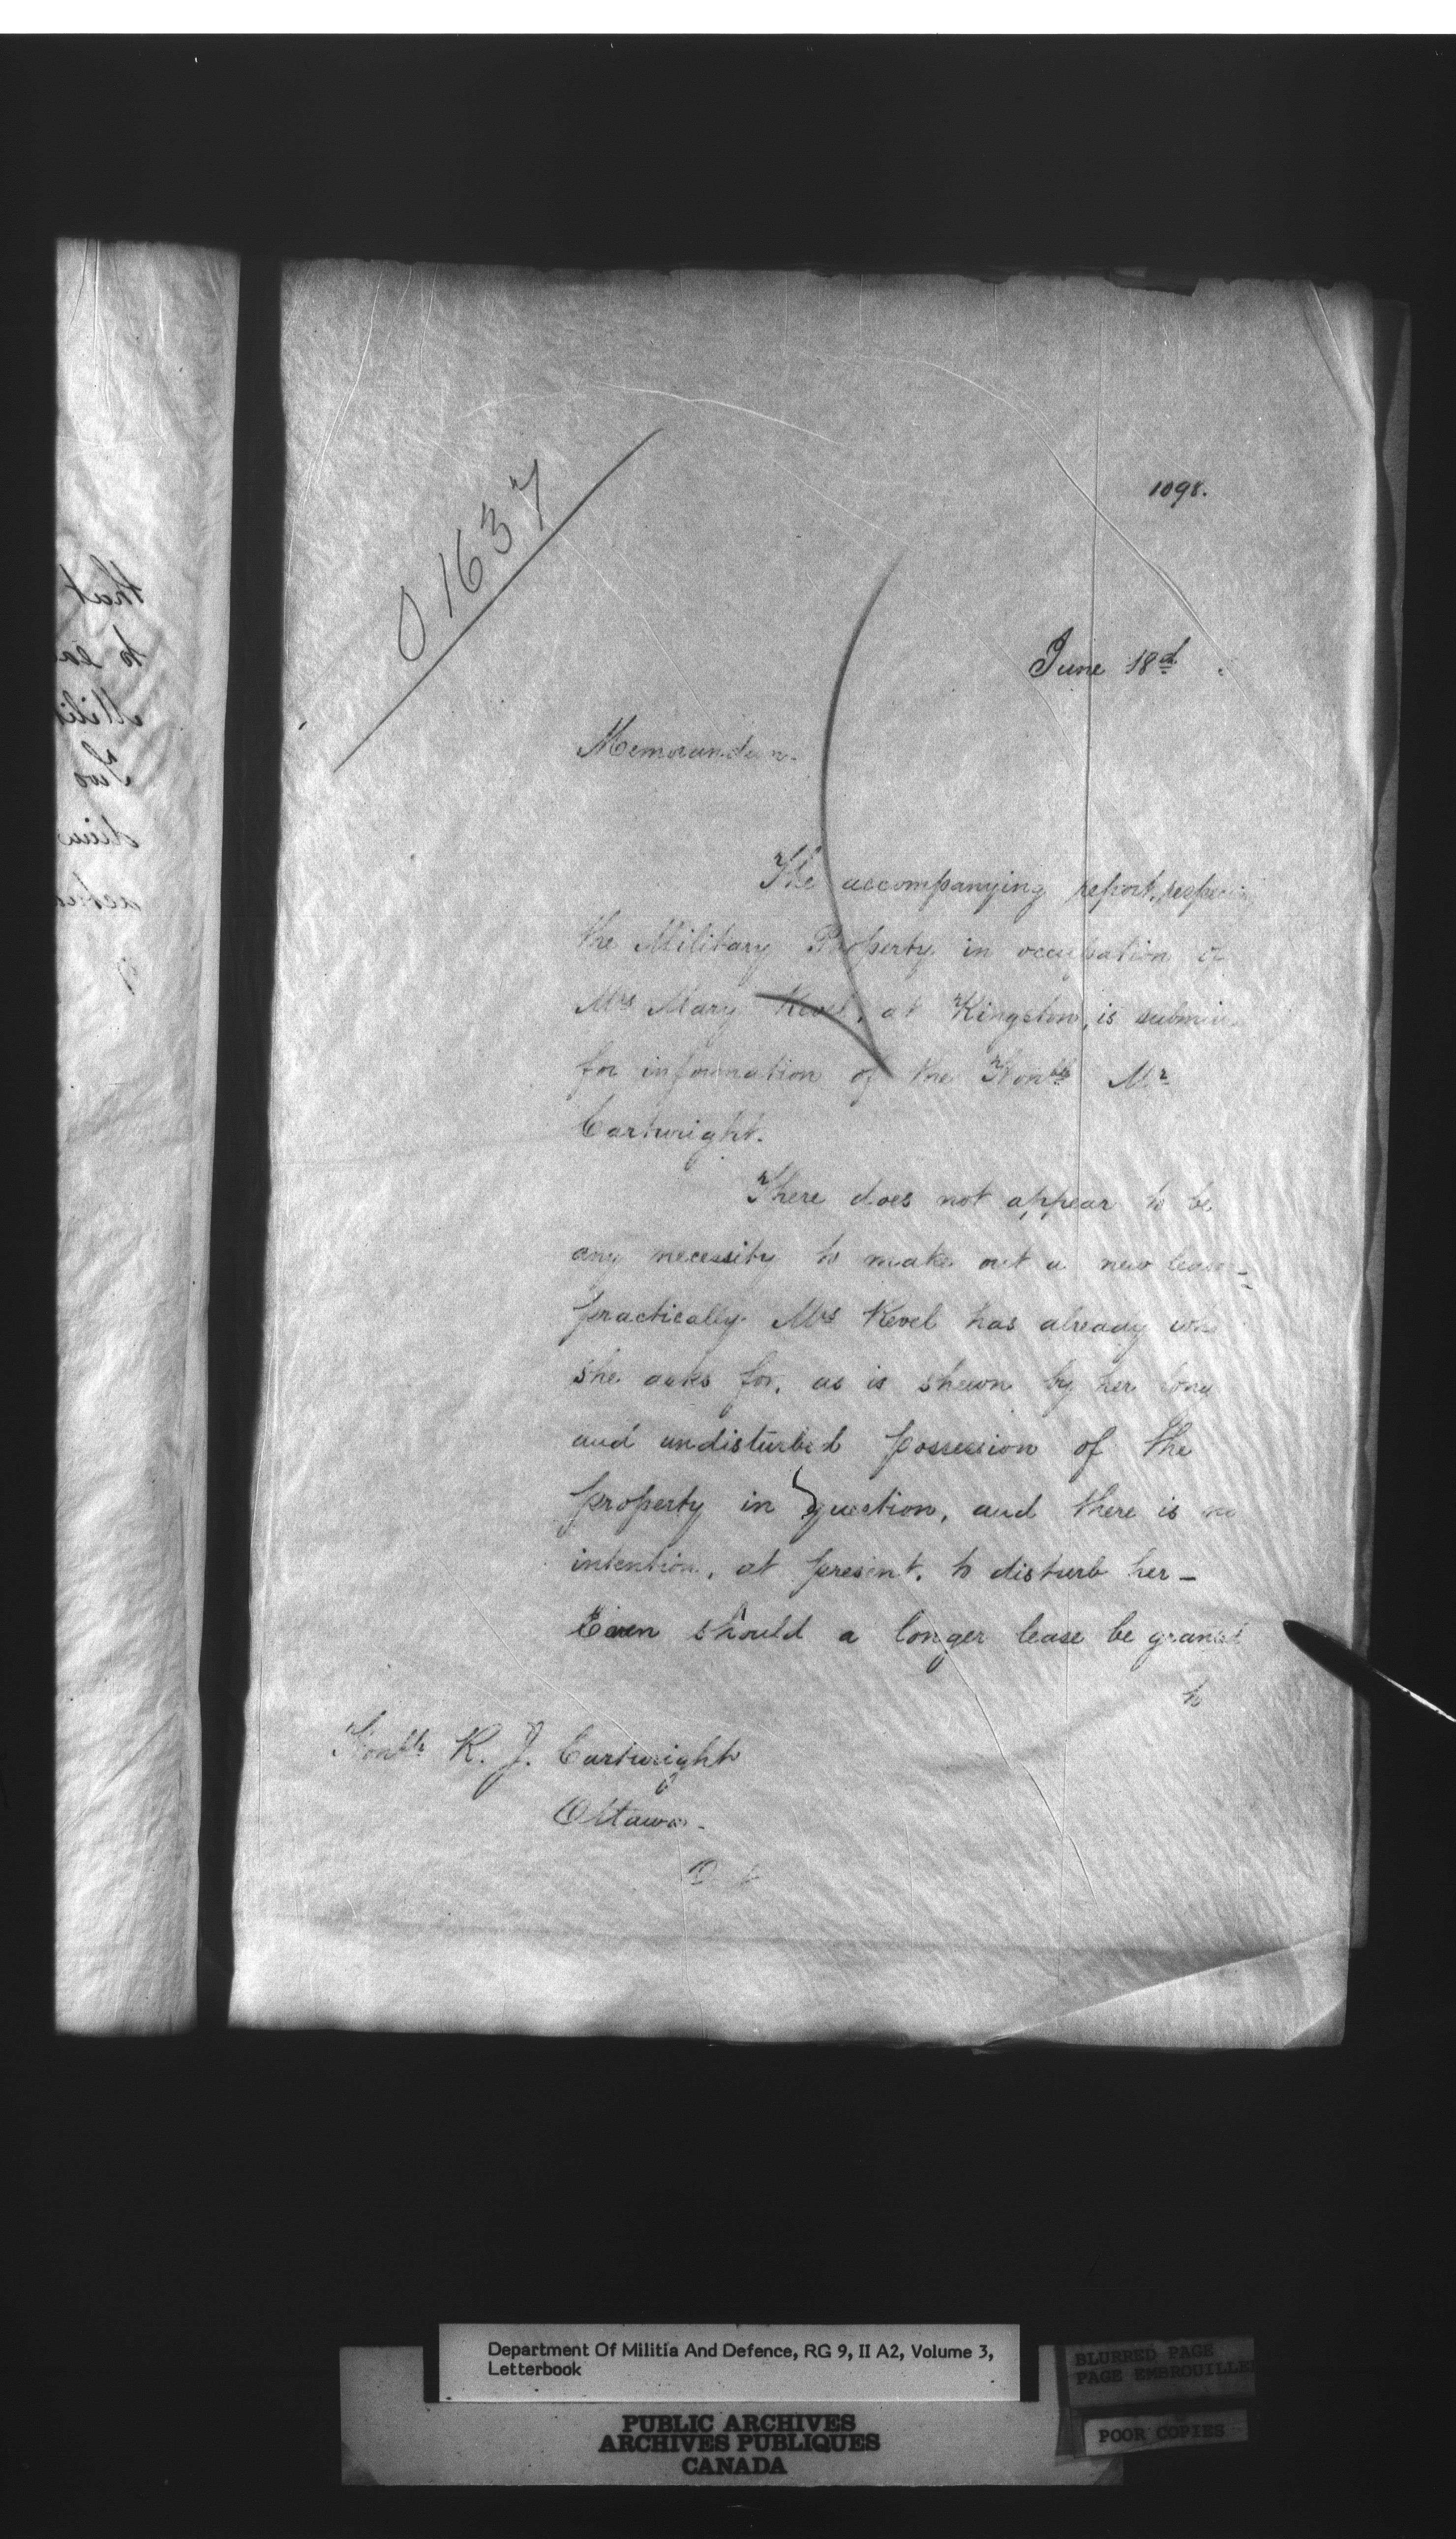 1098.
01637
June 18th
Memorandum.
The accompanying report, respecting
the Military Property in occupation of
Mrs Mary Kevel, at Kingston, is submi
for information of the Honble Mr
Cartwright.
There does not appear to be
any necessity to make out a new lease -
practically Mrs Kevel has already wh
she asks for, as is shewn by her long
and undisturbed possession of the
property in question, and there is no
intention, at present, to disturb her -
Even should a longer lease be granted
to
Honble R. J. Cartwright
Ottawa.
that
to
Mili
Two
Department Of Militia And Defence, RG 9, II A2, Volume 3,
Letterbook
PUBLIC ARCHIVES
ARCHIVES PUBLIQUES
CANADA
BLURRED PAGE
PAGE EMBROUILLEE
POOR COPIES